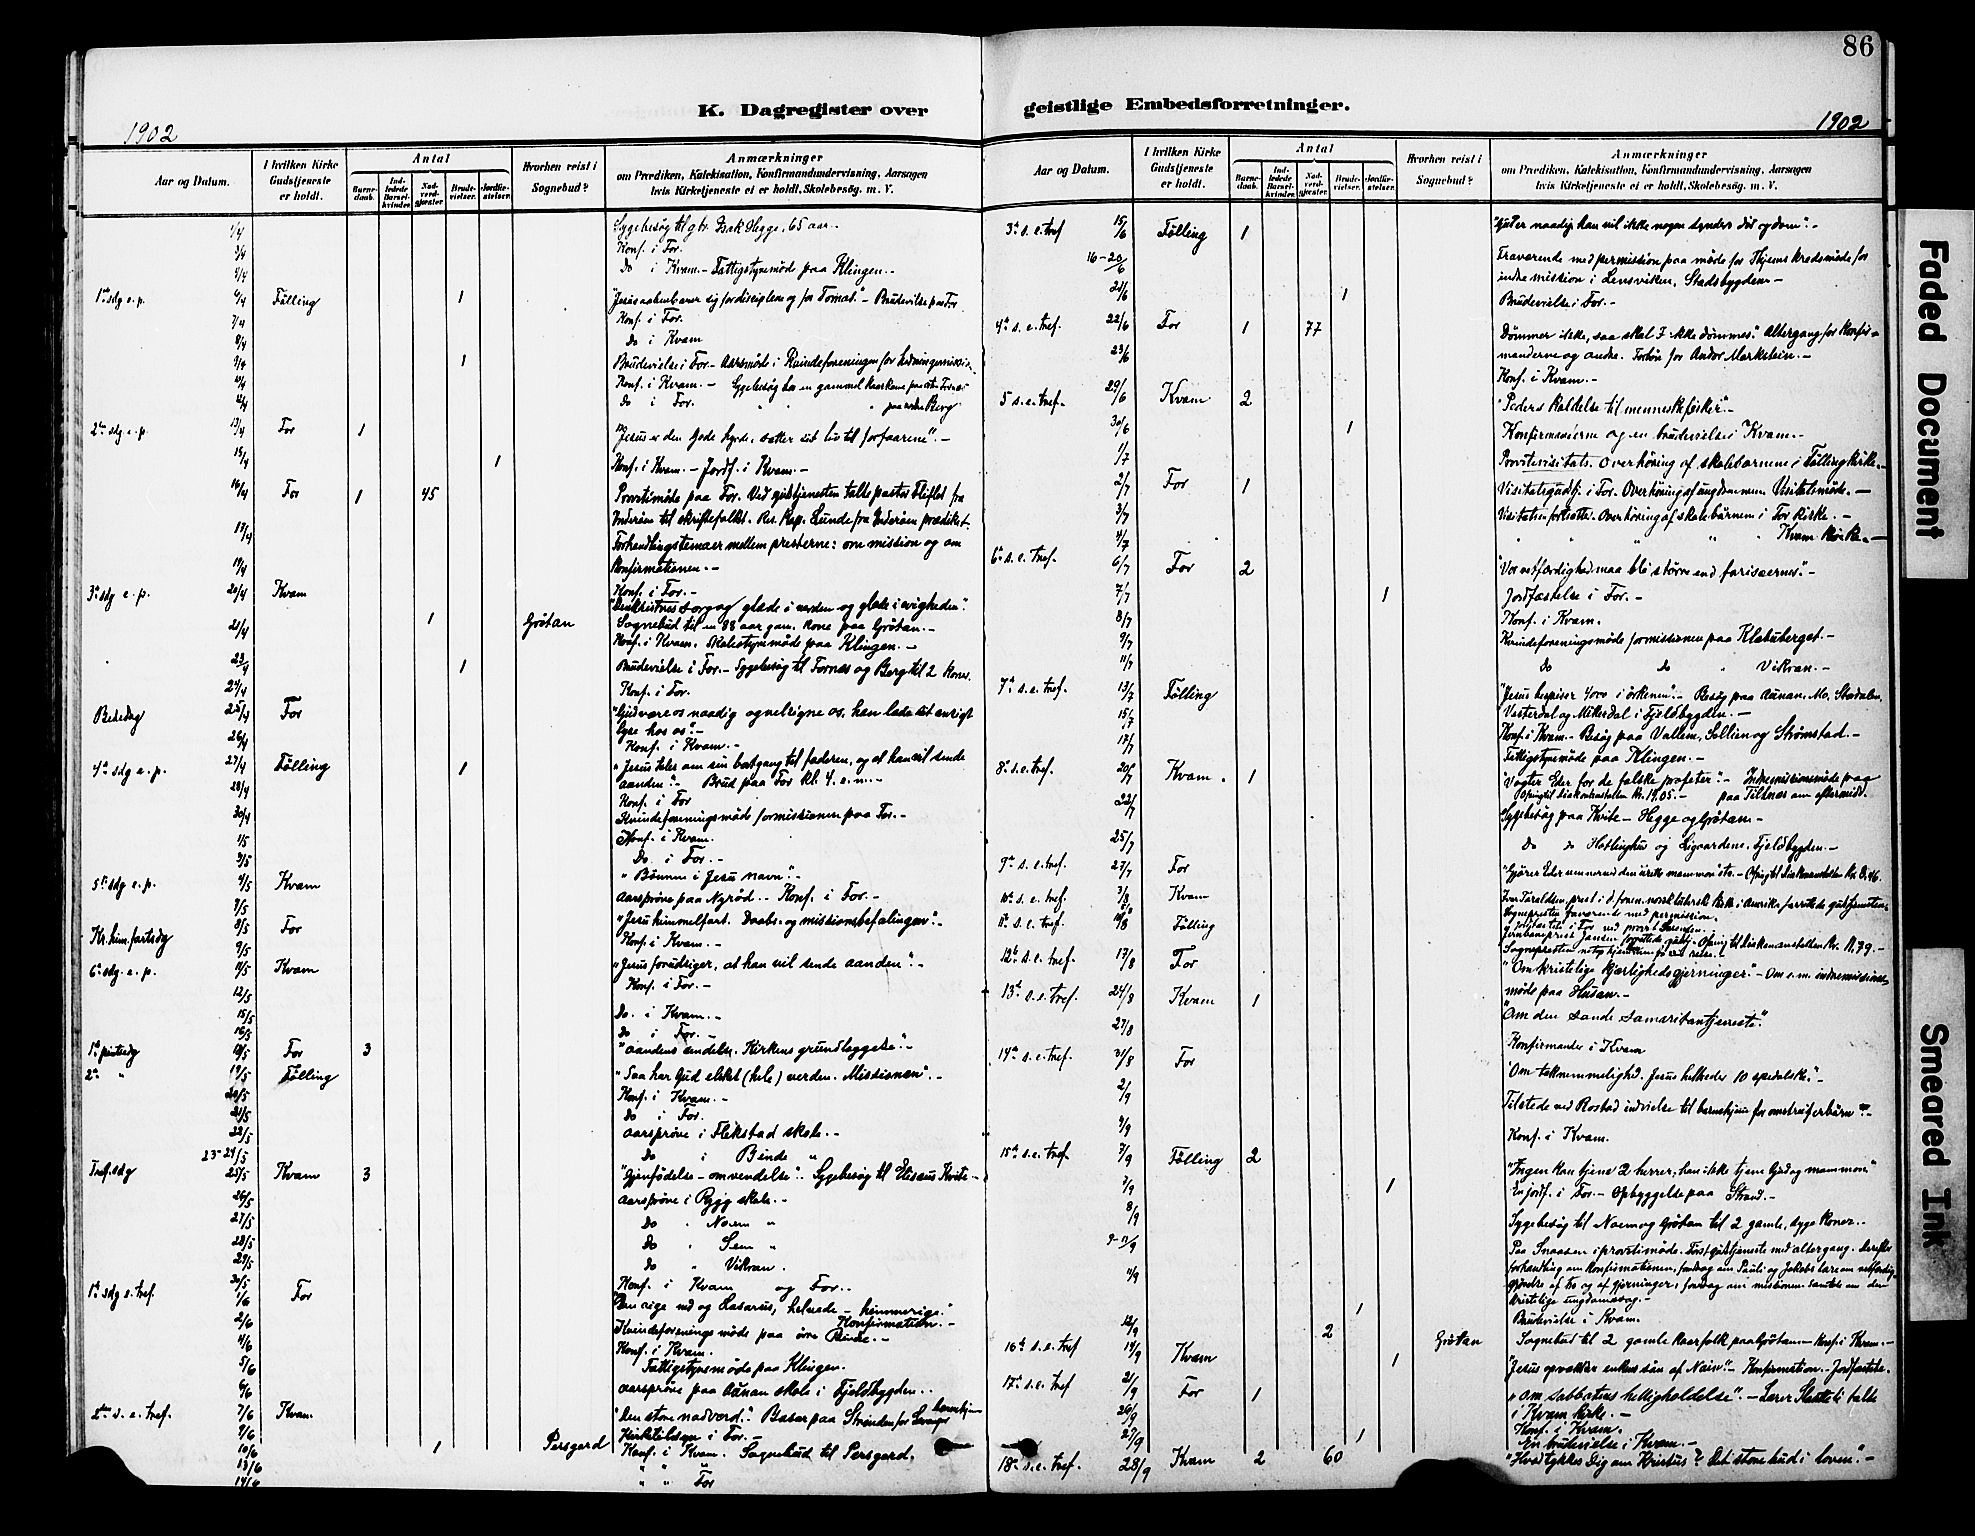 86
K. Dagregister over geistlige Embedsforretninger.
1902
1902
Aar og Datum.
I hvilken Kirke Gudstjeneste er holdt.
Antal
Barnedaab.
Indledede Barselkvinder.
Nadverdgjæster.
Brudevielser.
Jordfæstelser.
Hvorhen reist i Sognebud?
Anmærkninger
om Prædiken, Katekisation, Konfirmandundervisning, Aarsagen
hvis Kirketjeneste ei er holdt, Skolebesøg. m. V.
1/4 Sygebesøg til gbr. Isak Hegge, 65 aar.
3/4 Konf. i For.
Do i Kvam. – Fattigstyremøde paa Klingen.
1ste sdg e. p. 6/4 Følling 1 "Jesus aabenbarer sig for disciplene og for Tomas." – Brudevielse paa For
7/4 Konf. i For.
8/4 Do i Kvam
9/4 1 Brudevielse i For. – Aarsmøde i Kvindeforeningen for hedningemission.
Konf. i Kvam. – Sygebesøg hos en gammel
12/4 Do i For. Berg
2den sdg e. p. 13/4 For 1 "Jesus er den gode hyrde, sætter sit liv til for faarene". –
15/4 1 Konf. i Kvam. – Jordf. i Kvam. –
16/4 For 1 45 Provstimøde paa For. Ved gudstjenesten talte pastor Fliflet fra
Inderøen til skriftefolket. Res. Kap. Lunde fra Inderøen prædiket.
17/4 Forhandlingstemaer mellem presterne: om mission og om
konfirmationen. –
19/4 Konf. i For. –
3die sdg e. p. 20/4 Kvam sorg og glæde i verden og glæde i evigheden".
21/4 1 Grøtan Sognebud til en 88 aar gam. kone paa Grøtan. –
Konf. i Kvam. Skolestyremøde paa Klingen. –
23/4 1 Brudevielse i For. – Sygebesøg til Fornes og Berg til 2 koner.
24/4 Konf. i For.
Bededag 25/4 For "Gud være os naadig og velsigne os, han lade sit ansigt
lyse hos os". –
26/4 Konf. i Kvam. –
4de sdg e. p. 27/4 Følling 1 "Jesus taler om sin bortgang til faderen, og at han vil sende
aanden". – Brud paa For kl. 4. e. m. –
28/4 Konf. i For
30/4 Kvindeforeningsmøde for missionen paa For. –
1/5 Konf. i Kvam.
3/5 Do. i For. –
5te sdg e. p. 4/5 Kvam "Bønnen i Jesu navn". –
7/5 Aarsprøve paa Nyrød. – Konf. i For. –
Kr. him. fartsdg 8/5 For "Jesu himmelfart. Daabs- og missionsbefalingen". –
9/5 Konf. i Kvam. –
6te sdg. e. p. 11/5 Kvam "Jesus forudsiger, at han vil sende aanden". –
12/5 Konf. i For. –
15/5 Do. i Kvam. –
16/5 Do i For. –
1ste pintsedg 18/5 For 3 "Aandens sendelse. Kirkens grundlæggelse". –
2den " 19/5 Følling "Saa har Gud elsket (hele) verden. Missionen". –
20/5 Konf. i Kvam. –
21/5 Do i For.
22/5 Aarsprøve i Flekstad skole. –
23–24/5 Do i Binde "
Tref. sdg 25/5 Kvam 3 "Gjenfødelse – omvendelse". Sygebesøg til Elisæus Kvite –
26/5 Aarsprøve i Rygg skole. –
27/5 Do " Noem "
28/5 Do " Sem "
29/5 Do " Vikran. –
30/5 Konf. i Kvam og For.
1ste sdg e. tref. 1/6 For "Den rige mand og Lasarus, helvede – himmerige."
Konfirmation. –
2/6 Kvindeforenings møde paa øvre Binde. –
4/6 Konf. i Kvam.
5/6 Fattigstyremøde paa Klingen.
6/6 Aarsprøve paa Aunan skole i Fjeldbygden.
2den s. e. tref. 7/6 Kvam "Den store nadverd". Basar paa Strinden for
9/6 i For. –
10/6 1 Persgerd Konf. i Kvam. Sognebud til Persgerd.
13/6 " " "
14/6 " " For
3die s. e. tref 15/6 Følling 1 "Gud er naadig han vil ikke nogen synders død og dom". –
16–20/6 Fraværende med permission paa møde for kredsmøde for
indre mission i Lensviken, Stadsbygden –
21/6 1 Brudevielse i For. –
4de s. e. tref. 22/6 For 1 77 Dømmer ikke, saa skal I ikke dømmes". Altergang for konfirmanderne
og andre. Forbøn for Andor Markstein. –
23/6 Konf. i Kvam. –
5 s. e. tref. 29/6 Kvam 2 "Peders kaldelse til menneskefisker". –
30/6 1 Konfirmanterne og en brudevielse i Kvam. –
1/7 Provstevisitats. Overhøring af skolebørnene i Følling kirke. –
2/7 For 1 Visitatsgudstj. i For. Overhøring af ungdommen. Visitatsmøde. –
3/7 Visitatsen fortsatte. Overhøring af skolebørnene i For kirke. –
4/7 " " " " Kvam kirke. –
6te s. e. tref. 6/7 For 2 "Vor retfærdighed maa bli større end farisæernes". –
7/7 1 Jordfæstelse i For. –
8/7 Konf. i Kvam.
9/7 Kvindeforeningsmøde for missionen paa Kletuberget. –
11/7 do do " Vikran. –
7de s. e. tref. 13/7 Følling "Jesus bespiser 4000 i ørkenen". – Besøg paa Aunan, Mo, Stødalen,
15/7 Vesterdal og Mikkerdal i Fjeldbygden. –
17/7 Konf. i Kvam. – Besøg paa Vollem, Sollien og Strømstad. –
Fattigstyremøde paa Klingen. –
8de s. e. tref. 20/7 Kvam 1 "Vogter Eder for de falske profeter". – Indremissionsmøde paa
paa Tiltnes om efterm. Ofring til diakonanstalten Kr. 19.05. –
22/7 Sygebesøg paa Kvite – Hegge og Grøtan –
25/7 Do do Hatlinghus og Ligaardene, Fjeldbygden. –
9de s. e. tref. 27/7 For "Gjører Eder venner ved den urette mammon" etc. – Ofring til diakonanstalten Kr. 8.46.
10de s. e. tref. 3/8 Kvam Iver Tharaldsen, prest i d. foren. norsk luthersk kirke i Amerika forrettede gudstjenesten.
Sognepresten fraværende med permission.
11te s. e. tref. 10/8 Følling
forrettede gudstj. Ofring til diakonanstalten Kr. 11.79. –
12te s. e. tref. 17/8 For "Om kristelige kjærlighedsgjerninger". – Om e. m. indremissions
møde paa Husan. –
13de s. e. tref. 24/8 Kvam 1 "Om den sande samaritantjeneste".
27/8 Konfirmander i Kvam
14de s. e. tref. 31/8 For "Om taknemmelighed. Jesus helbreder 10 spedalske". –
2/9 Tilstede ved Rostad indvielse til barnehjem for omstreiferbørn –
3/9 Konf. i Kvam.
15de s. e. tref. 7/9 Følling 2 "Ingen kan tjene 2 herrer, han ikke tjene Gud og mammon."
7/9 1 En jordf. i For. – Opbyggelse paa Strand. –
8/9 Sygebesøg til Noem og Grøtan til 2 gamle, syge koner.
9–11/9 Paa Snaasen i provstimøde. Først gudstjeneste med altergang. Derefter
forhandling om konfirmationen, foredrag om Pauli og Jakobs lære om retfærdiggjørelse
af tro og af gjerninger, foredrag om missionen samtale om den
kristelige ungdomssag. –
11/9 1 Brudevielse i Kvam.
12/9 2 Grøtan Sognebud til 2 gamle kaarfolk paa Grøtan – Konf. i Kvam. –
16de s. e. tref 14/9 Kvam 1 "Jesus opvækker enkens søn af Nain". – Konfirmation. – Jordfæstelse.
17de s. e. tref 21/9 For 1 "Om sabbatens helligholdelse". – Lærer talte
i Kvam kirke. –
26/9 Konf. i Kvam.
27/9 1 En brudevielse i Kvam. –
18de s. e. tref. 28/9 Kvam 2 60 "Hvad tykkes Dig om Kristus"? Det store bud i loven". –
Faded Document
Smeared Ink